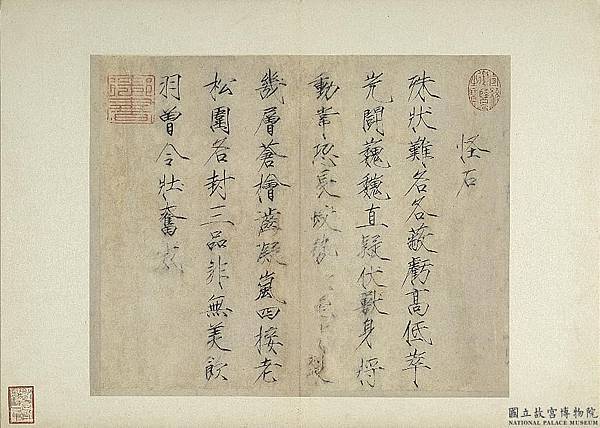 怪石
殊狀難名各蔽虧高低崒
屼鬪巍巍直疑伏獸身將
動常恐長蛟
幾層蒼檜凝嵐四接老
松圍各封三品非無美飲
羽曾令壯奮
國立故宮博物院
NATIONAL PALACE MUSEUM